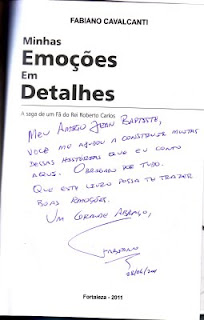 FABIANO CAVALCANTI
Minhas
Emoções
Em
Detalhes
A saga de um fã do Rei Roberto Carlos
MEU AMIGO JEAN BAPTISTE,
VOCÊ ME AJUDOU A CONSTRUIR MUITAS
DESSAS HISTÓRIAS QUE EU CONTO
AQUI. OBRIGADO POR TUDO.
QUE ESTE LIVRO POSSA TE TRAZER
BOAS EMOÇÕES.
UM GRANDE ABRAÇO,
FABIANO
Fortaleza - 2011